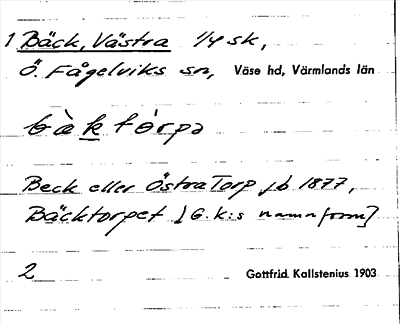 1 Bäck, Västra 1/4 sk,
Ö. Fågelviks sn, Väse hd, Värmlands län
bàktórpə
Beck eller Östra Torp jb 1877,
Bäcktorpet [G. K:s namnform]
2 Gottfrid Kallstenius 1903